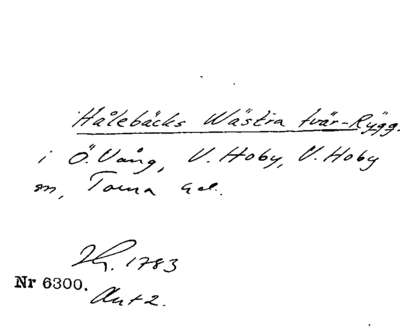 Hålebäcks Wästra tvär-Rygg.
i Ö. Vång, V. Hoby, V. Hoby
sn, Torna hd.
1783
Nr 6300.
Akt 2.